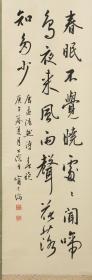 春眠不覺曉處處聞啼
鳥夜来風雨聲花落
知多少
唐孟浩然詩春曉